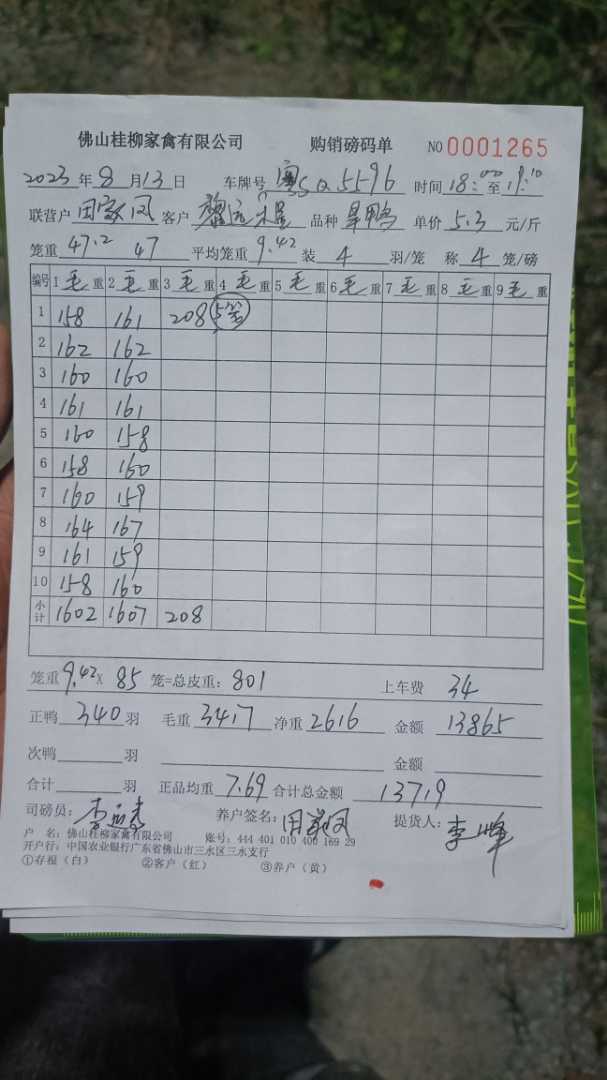 佛山桂柳家禽有限公司 购销磅码单 NO 0001265
2023 年 8 月 13 日 车牌号 粤SQ5596 时间 18:00 至 19:10
联营户 田家凤 客户 品种 旱鸭 单价 5.3 元/斤
笼重 47.2 47 平均笼重 9.42 装 4 羽/笼 称 4 笼/磅
编号 1 毛 重 2 毛 重 3 毛 重 4 毛 重 5 毛 重 6 毛 重 7 毛 重 8 毛 重 9 毛 重
1 158 161 208 5笼
2 162 162
3 160 160
4 161 161
5 160 158
6 158 160
7 160 159
8 164 167
9 161 159
10 158 160
小计 1602 1607 208
笼重 9.42 × 85 笼=总皮重: 801 上车费 34
正鸭 340 羽 毛重 3417 净重 2616 金额 13865
次鸭 羽 金额
合计 羽 正品均重 7.69 合计总金额 13719
司磅员: 养户签名: 田家凤 提货人: 李峰
户 名: 佛山桂柳家禽有限公司 账号: 444 401 010 400 169 29
开户行: 中国农业银行广东省佛山市三水区三水支行
①存根(白) ②客户(红) ③养户(黄)